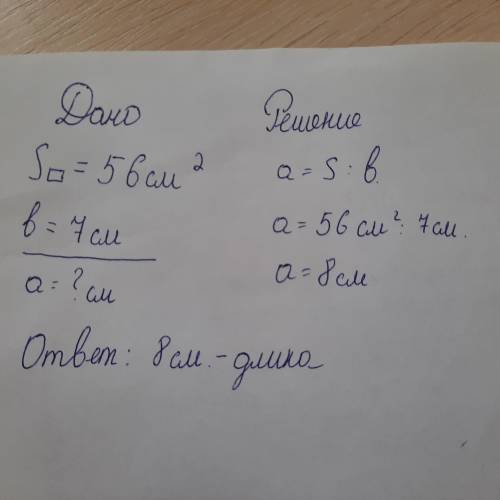 Дано
S□ = 56 см²
в = 7 см
а = ? см
Решение
а = S : в.
а = 56 см² : 7 см.
а = 8 см
Ответ: 8 см. - длина